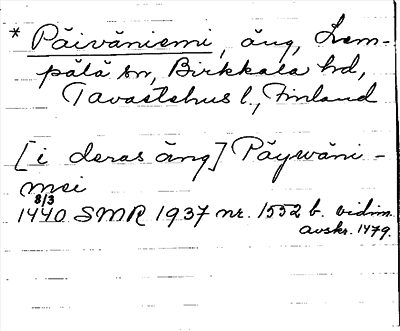 * Päiväniemi, äng, Lem-
pälä sn, Birkkala hd,
Tavastehus l., Finland
[i deras äng] Päywäni-
mei
8/3
1440 SMR 1937 nr. 1552 b. vidim.
avskr. 1479.